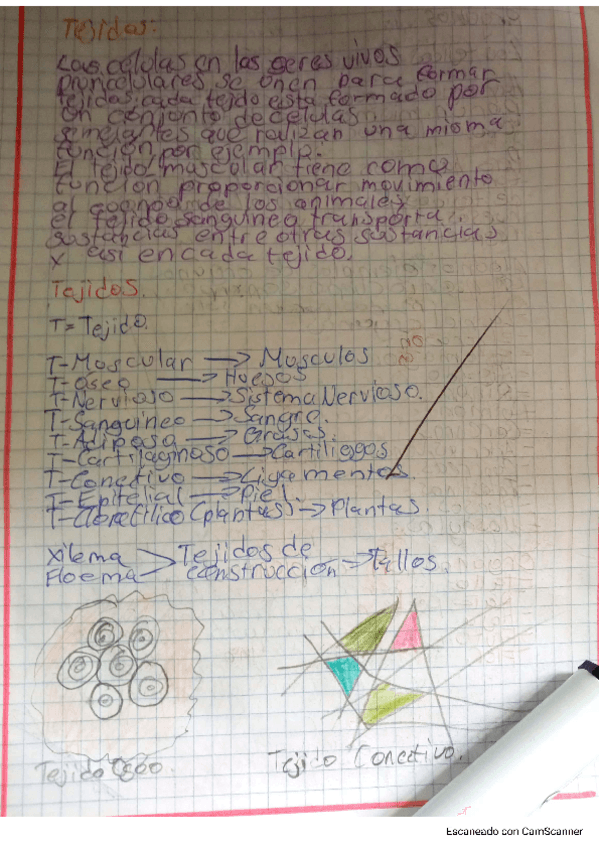 Tejidos:
Las celulas en las seres vivos
pluricelulares se unen para formar
tejidos, cada tejido esta formado por
un conjunto de celulas
semejantes que realizan una misma
función, por ejemplo:
El tejido muscular tiene como
función proporcionar movimiento
al cuerpo de los animales
el tejido sanguineo transporta
sustancias entre otras sustancias
x asi en cada tejido.
Tejidos.
T=Tejido.
T-Muscular → Musculos
T-oseo → Huesos
T-Nervioso → Sistema Nervioso.
T-Sanguineo → Sangre.
T-Adiposa → Grasas.
T-Cartilaginoso → Cartiligos
T-Conectivo → Ligamentos.
T-Epitelial → Piel
T-Clorofilico (plantas) → Plantas.
Xilema
Floema
Tejidos de
construccion → Tallos.
Tejido Oseo.
Tejido Conectivo.
Escaneado con CamScanner